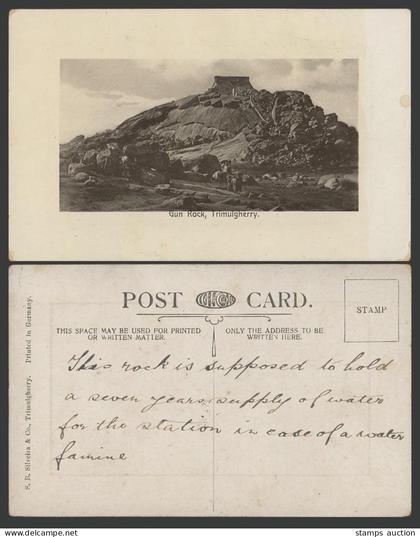 Gun Rock, Trimulgherry.
POST CARD.
THIS SPACE MAY BE USED FOR PRINTED
OR WRITTEN MATTER.
ONLY THE ADDRESS TO BE
WRITTEN HERE.
STAMP
This rock is supposed to hold
a seven years supply of water
for the station in case of a water
famine
S. R. Silveira & Co., Trimulgherry. Printed in Germany.
www.stamps-auction.com